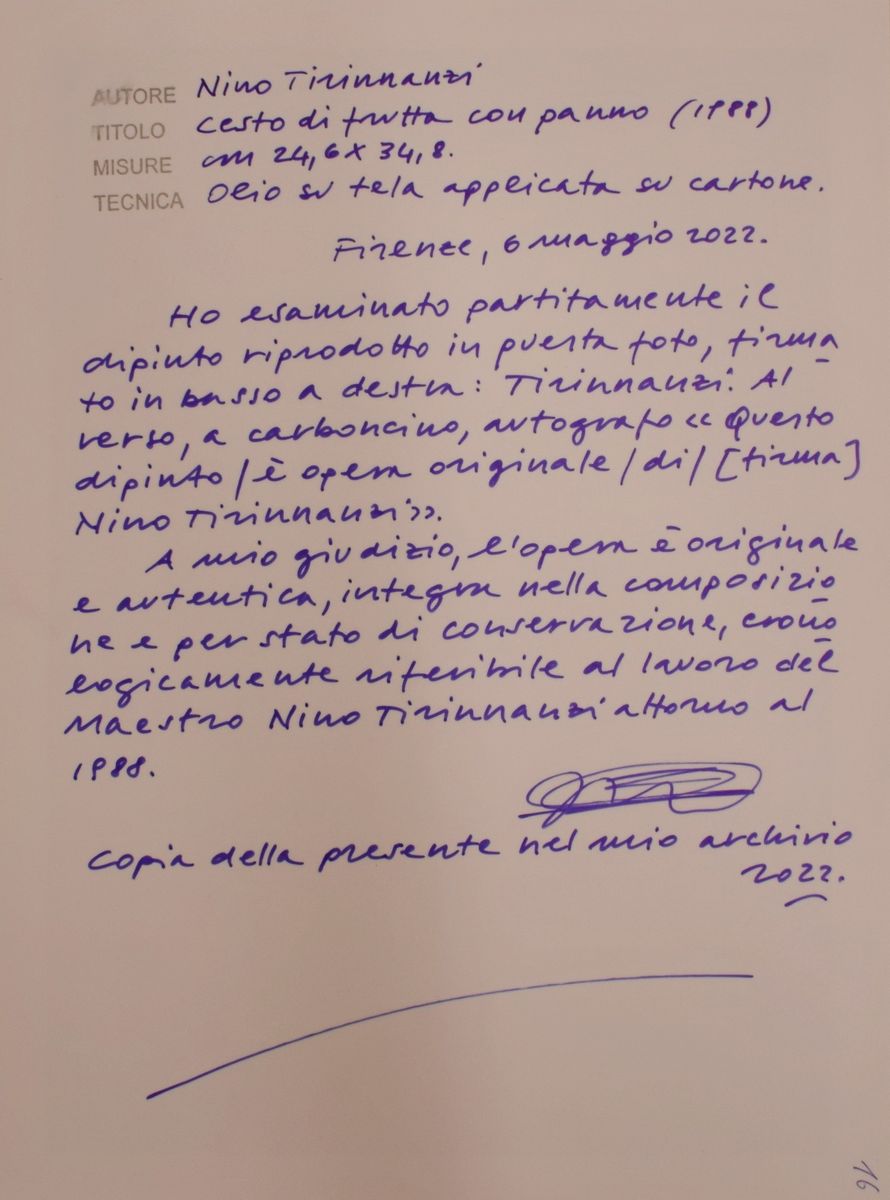 AUTORE Nino Tirinnanzi
TITOLO Cesto di frutta con panno (1988)
MISURE cm 24,6 x 34,8.
TECNICA Olio su tela applicata su cartone.
Firenze, 6 maggio 2022.
Ho esaminato partitamente il
dipinto riprodotto in questa foto, firma
to in basso a destra: Tirinnanzi. Al
verso, a carboncino, autografo « Questo
dipinto / è opera originale / di / [firma]
Nino Tirinnanzi».
A mio giudizio, l'opera è originale
e autentica, integra nella composizio
ne e per stato di conservazione, crono
logicamente riferibile al lavoro del
Maestro Nino Tirinnanzi attorno al
1988.
Copia della presente nel mio archivio
2022.
16